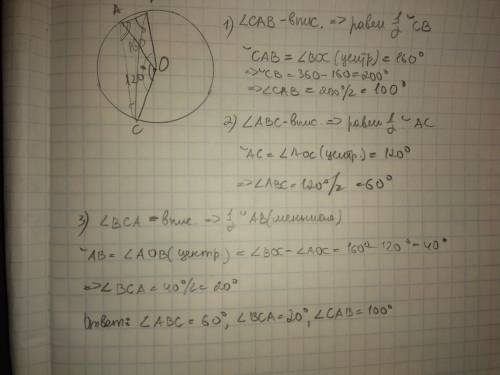 A
160
120°
O
C
1) ∠CAB - впис. => равен 1/2 ◡CB
◡CAB = ∠BOC (центр) = 160°
=> ◡CB = 360 - 160 = 200°
=> ∠CAB = 200°/2 = 100°
2) ∠ABC - впис. => равен 1/2 ◡AC
◡AC = ∠AOC (центр.) = 120°
=> ∠ABC = 120°/2 = 60°
3) ∠BCA = впис => 1/2 ◡AB (меньшая)
◡AB = ∠AOB (центр.) = ∠BOC - ∠AOC = 160° - 120° = 40°
=> ∠BCA = 40°/2 = 20°
Ответ: ∠ABC = 60°, ∠BCA = 20°, ∠CAB = 100°